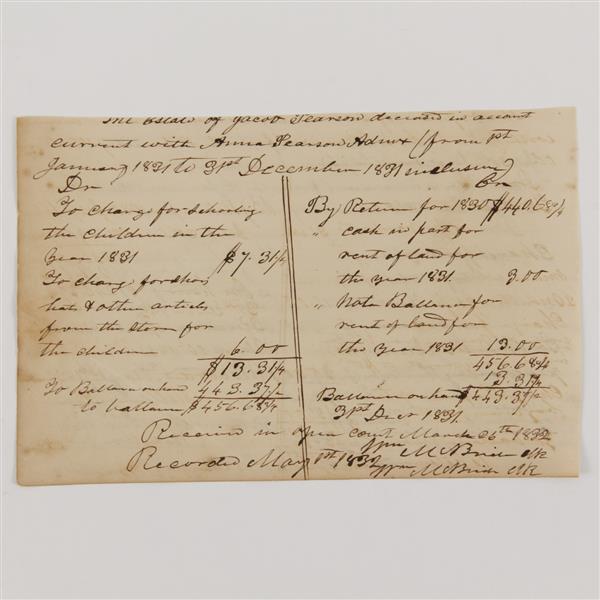 The Estate of Jacob Pearson deceased in account
current with Anna Pearson Admx (from 1st
January 1831 to 31st December 1831 inclusive)
Dr
To charge for schooling
the children in the
year 1831 $7.31¼
To charge for shoes
hats & other articles
from the store for
the children 6.00
$13.31¼
To Ballance on hand 443.37½
to ballance $456.68¾
Cr
By Return for 1830 $440.68¾
" cash in part for
rent of land for
the year 1831. 3.00
" Note Ballance for
rent of land for
the year 1831 13.00
456.68¾
13.31¼
Ballance on hand $443.37½
31st Decr 1831.
Received in open court March 26th 1832
Wm McBride clk
Recorded May 1832
Wm McBride clk